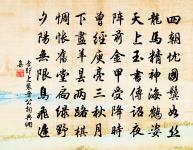 四朝忧國鬢如絲
龍馬精神海鶴姿
天上玉書傳詔夜
陣前金甲受降時
曾經庾亮三秋月
下盡羊曇兩路棋
惆悵舊堂扃綠野
夕陽無限鳥飛遲
李郢上裴晉公